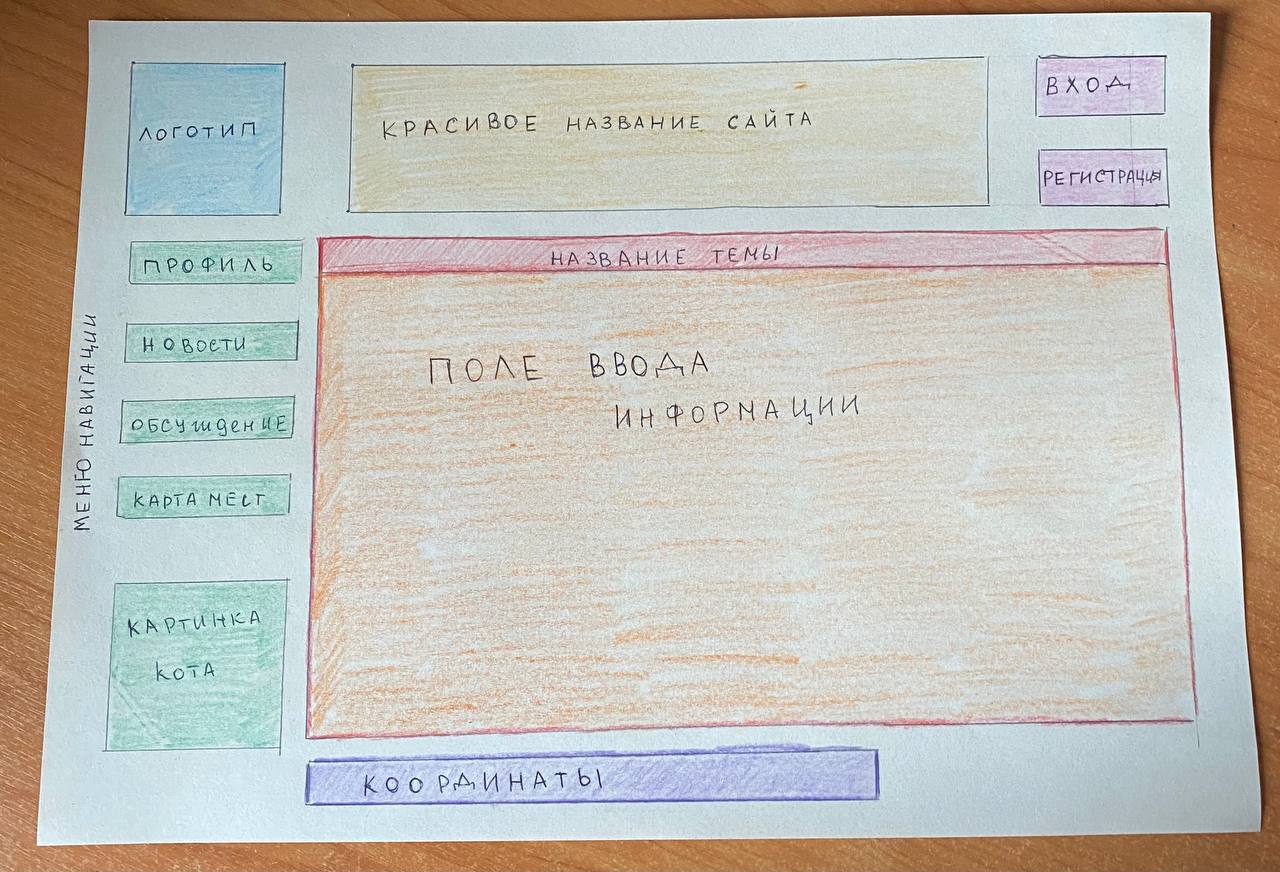 ЛОГОТИП
КРАСИВОЕ НАЗВАНИЕ САЙТА
ВХОД
РЕГИСТРАЦИЯ
МЕНЮ НАВИГАЦИИ
ПРОФИЛЬ
НОВОСТИ
ОБСУЖДЕНИЕ
КАРТА МЕСТ
КАРТИНКА
КОТА
НАЗВАНИЕ ТЕМЫ
ПОЛЕ ВВОДА
ИНФОРМАЦИИ
КООРДИНАТЫ